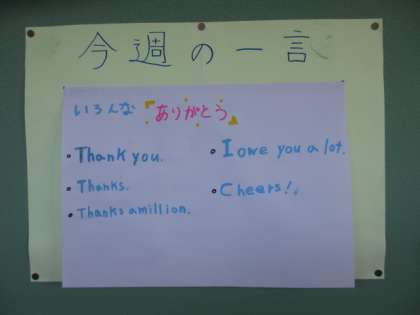 今週の一言
いろんな「ありがとう」
• Thank you.
• Thanks.
• Thanks a million.
• I owe you a lot.
• Cheers!